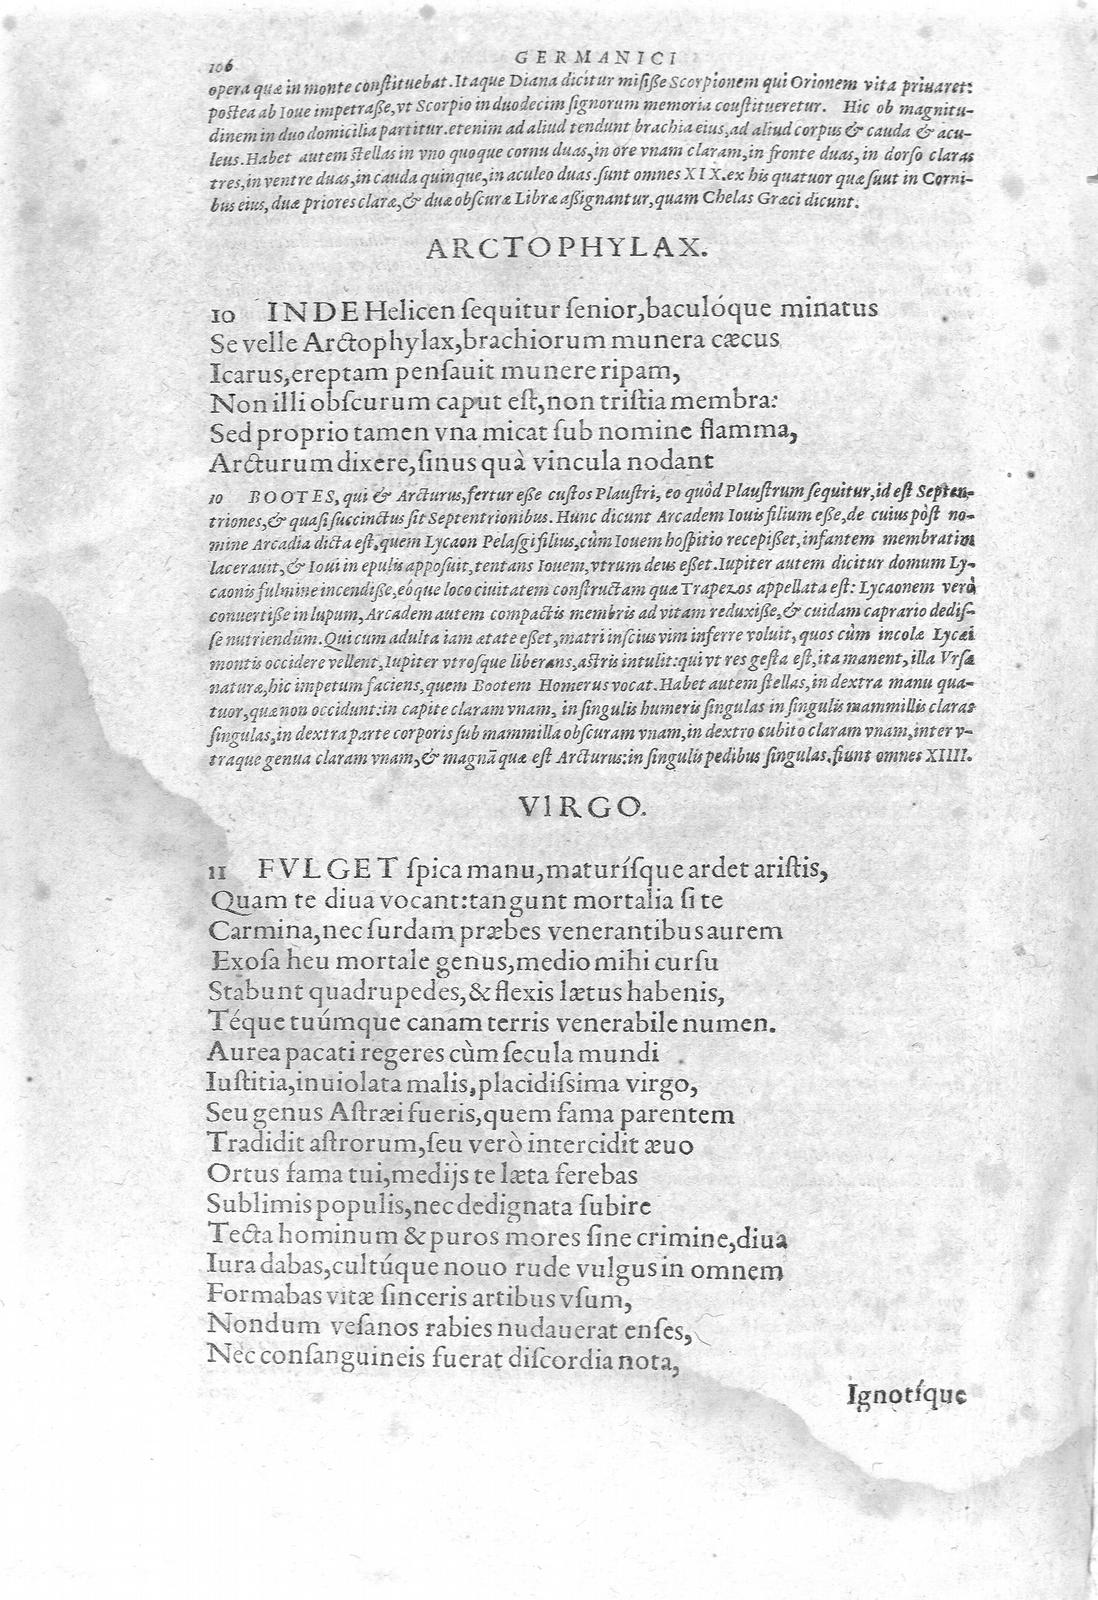 106
GERMANICI
opera quæ in monte conſtituebat. Itaque Diana dicitur miſiſſe Scorpionem qui Orionem vita priuaret:
poſtea ab Ioue impetraſſe, vt Scorpio in duodecim ſignorum memoria conſtitueretur. Hic ob magnitu-
dinem in duo domicilia partitur. etenim ad aliud tendunt brachia eius, ad aliud corpus & cauda & acu-
leus. Habet autem ſtellas in vno quoque cornu duas, in ore vnam claram, in fronte duas, in dorſo claras
tres, in ventre duas, in cauda quinque, in aculeo duas. ſunt omnes XIX. ex his quatuor quæ ſuut in Corni-
bus eius, duæ priores claræ, & duæ obſcuræ Libræ aßignantur, quam Chelas Græci dicunt.
ARCTOPHYLAX.
10 INDE Helicen ſequitur ſenior, baculóque minatus
Se velle Arctophylax, brachiorum munera cæcus
Icarus, ereptam penſauit munere ripam,
Non illi obſcurum caput eſt, non triſtia membra:
Sed proprio tamen vna micat ſub nomine flamma,
Arcturum dixere, ſinus quà vincula nodant
10 BOOTES, qui & Arcturus, fertur eße cuſtos Plauſtri, eo quòd Plauſtrum ſequitur, id eſt Septen-
triones, & quaſi ſuccinctus ſit Septentrionibus. Hunc dicunt Arcadem Iouis filium eße, de cuius pòſt no-
mine Arcadia dicta eſt, quem Lycaon Pelaſgi filius, cùm Iouem hoſpitio recepißet, infantem membratim
lacerauit, & Ioui in epulis appoſuit, tentans Iouem, vtrum deus eßet. Iupiter autem dicitur domum Ly-
caonis fulmine incendiße, eóque loco ciuitatem conſtructam quæ Trapezos appellata eſt: Lycaonem verò
conuertiße in lupum, Arcadem autem compactis membris ad vitam reduxiße, & cuidam caprario dediſ-
ſe nutriendum. Qui cum adulta iam ætate eßet, matri inſcius vim inferre voluit, quos cùm incolæ Lycæi
montis occidere vellent, Iupiter vtroſque liberans, aſtris intulit: qui vt res geſta eſt, ita manent, illa Vrſæ
naturæ, hic impetum faciens, quem Bootem Homerus vocat. Habet autem ſtellas, in dextra manu qua-
tuor, quæ non occidunt: in capite claram vnam, in ſingulis humeris ſingulas in ſingulis mammillis claras
ſingulas, in dextra parte corporis ſub mammilla obſcuram vnam, in dextro cubito claram vnam, inter v-
traque genua claram vnam, & magnā quæ eſt Arcturus: in ſingulis pedibus ſingulas. fiunt omnes XIIII.
VIRGO.
11 FVLGET ſpica manu, maturíſque ardet ariſtis,
Quam te diua vocant: tangunt mortalia ſi te
Carmina, nec ſurdam præbes venerantibus aurem
Exoſa heu mortale genus, medio mihi curſu
Stabunt quadrupedes, & flexis lætus habenis,
Téque tuúmque canam terris venerabile numen.
Aurea pacati regeres cùm ſecula mundi
Iuſtitia, inuiolata malis, placidiſsima virgo,
Seu genus Aſtræi fueris, quem fama parentem
Tradidit aſtrorum, ſeu verò intercidit æuo
Ortus fama tui, medijs te læta ferebas
Sublimis populis, nec dedignata ſubire
Tecta hominum & puros mores ſine crimine, diua
Iura dabas, cultúque nouo rude vulgus in omnem
Formabas vitæ ſinceris artibus vſum,
Nondum veſanos rabies nudauerat enſes,
Nec conſanguineis fuerat diſcordia nota,
Ignotíque